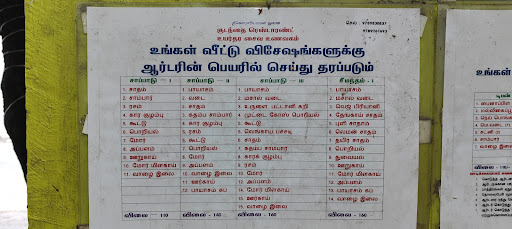 செல் : 9789830837
9789741603
குடந்தை ரெஸ்டாரண்ட்
உயர்தர சைவ உணவகம்
உங்கள் வீட்டு விசேஷங்களுக்கு
ஆர்டரின் பெயரில் செய்து தரப்படும்
சாப்பாடு — I
1. சாதம்
2. சாம்பார்
3. ரசம்
4. கார குழம்பு
5. கூட்டு
6. பொறியல்
7. மோர்
8. அப்பளம்
9. ஊறுகாய்
10. மோர் மிளகாய்
11. வாழை இலை
விலை — 110
சாப்பாடு — II
1. பாயாசம்
2. வடை
3. சாதம்
4. கதம்ப சாம்பார்
5. கார குழம்பு
6. கூட்டு
7. பொறியல்
8. ரசம்
9. மோர்
10. அப்பளம்
11. வாழை இலை
12. ஊர்காய்
12. பாயாசம் கப்
விலை - 140
சாப்பாடு — III
1. பாயாசம்
2. மசால் வடை
3. உருளை பட்டாணி கறி
4. முட்டை கோஸ் பொறியல்
5. கூட்டு
6. வெங்காய பச்சடி
7. சாதம்
8. கதம்ப சாம்பார்
9. காரக் குழம்பு
10. ரசம்
11. மோர்
12. அப்பளம்
13. மோர் மிளகாய்
15. ஊர்காய்
15. வாழை இலை
விலை - 160
சீமந்தம் - I
1. பாயாசம்
2. மசால் வடை
3. வெஜ் பிரியாணி
4. தேங்காய் சாதம்
5. புளி சாதம்
6. லெமன் சாதம்
7. தயிர் சாதம்
8. பொறியல்
9. துவையல்
10. ஊறுகாய்
11. மோர் மிளகாய்
12. அப்பளம்
13. பாயாசம் கப்
14. வாழை இலை
விலை - 160
உங்கள்